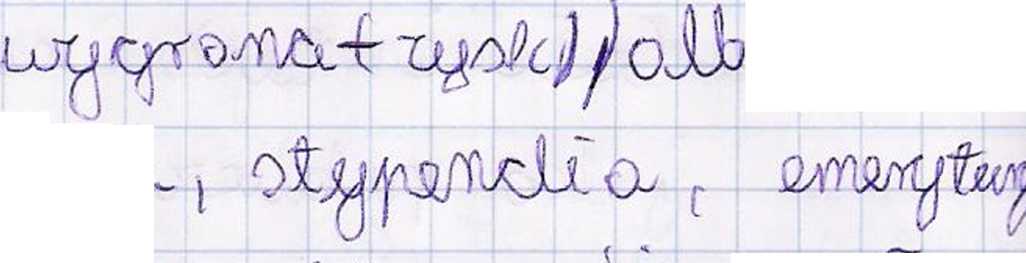 wygrana + zysk)/ alb
-, stypendia, emerytur